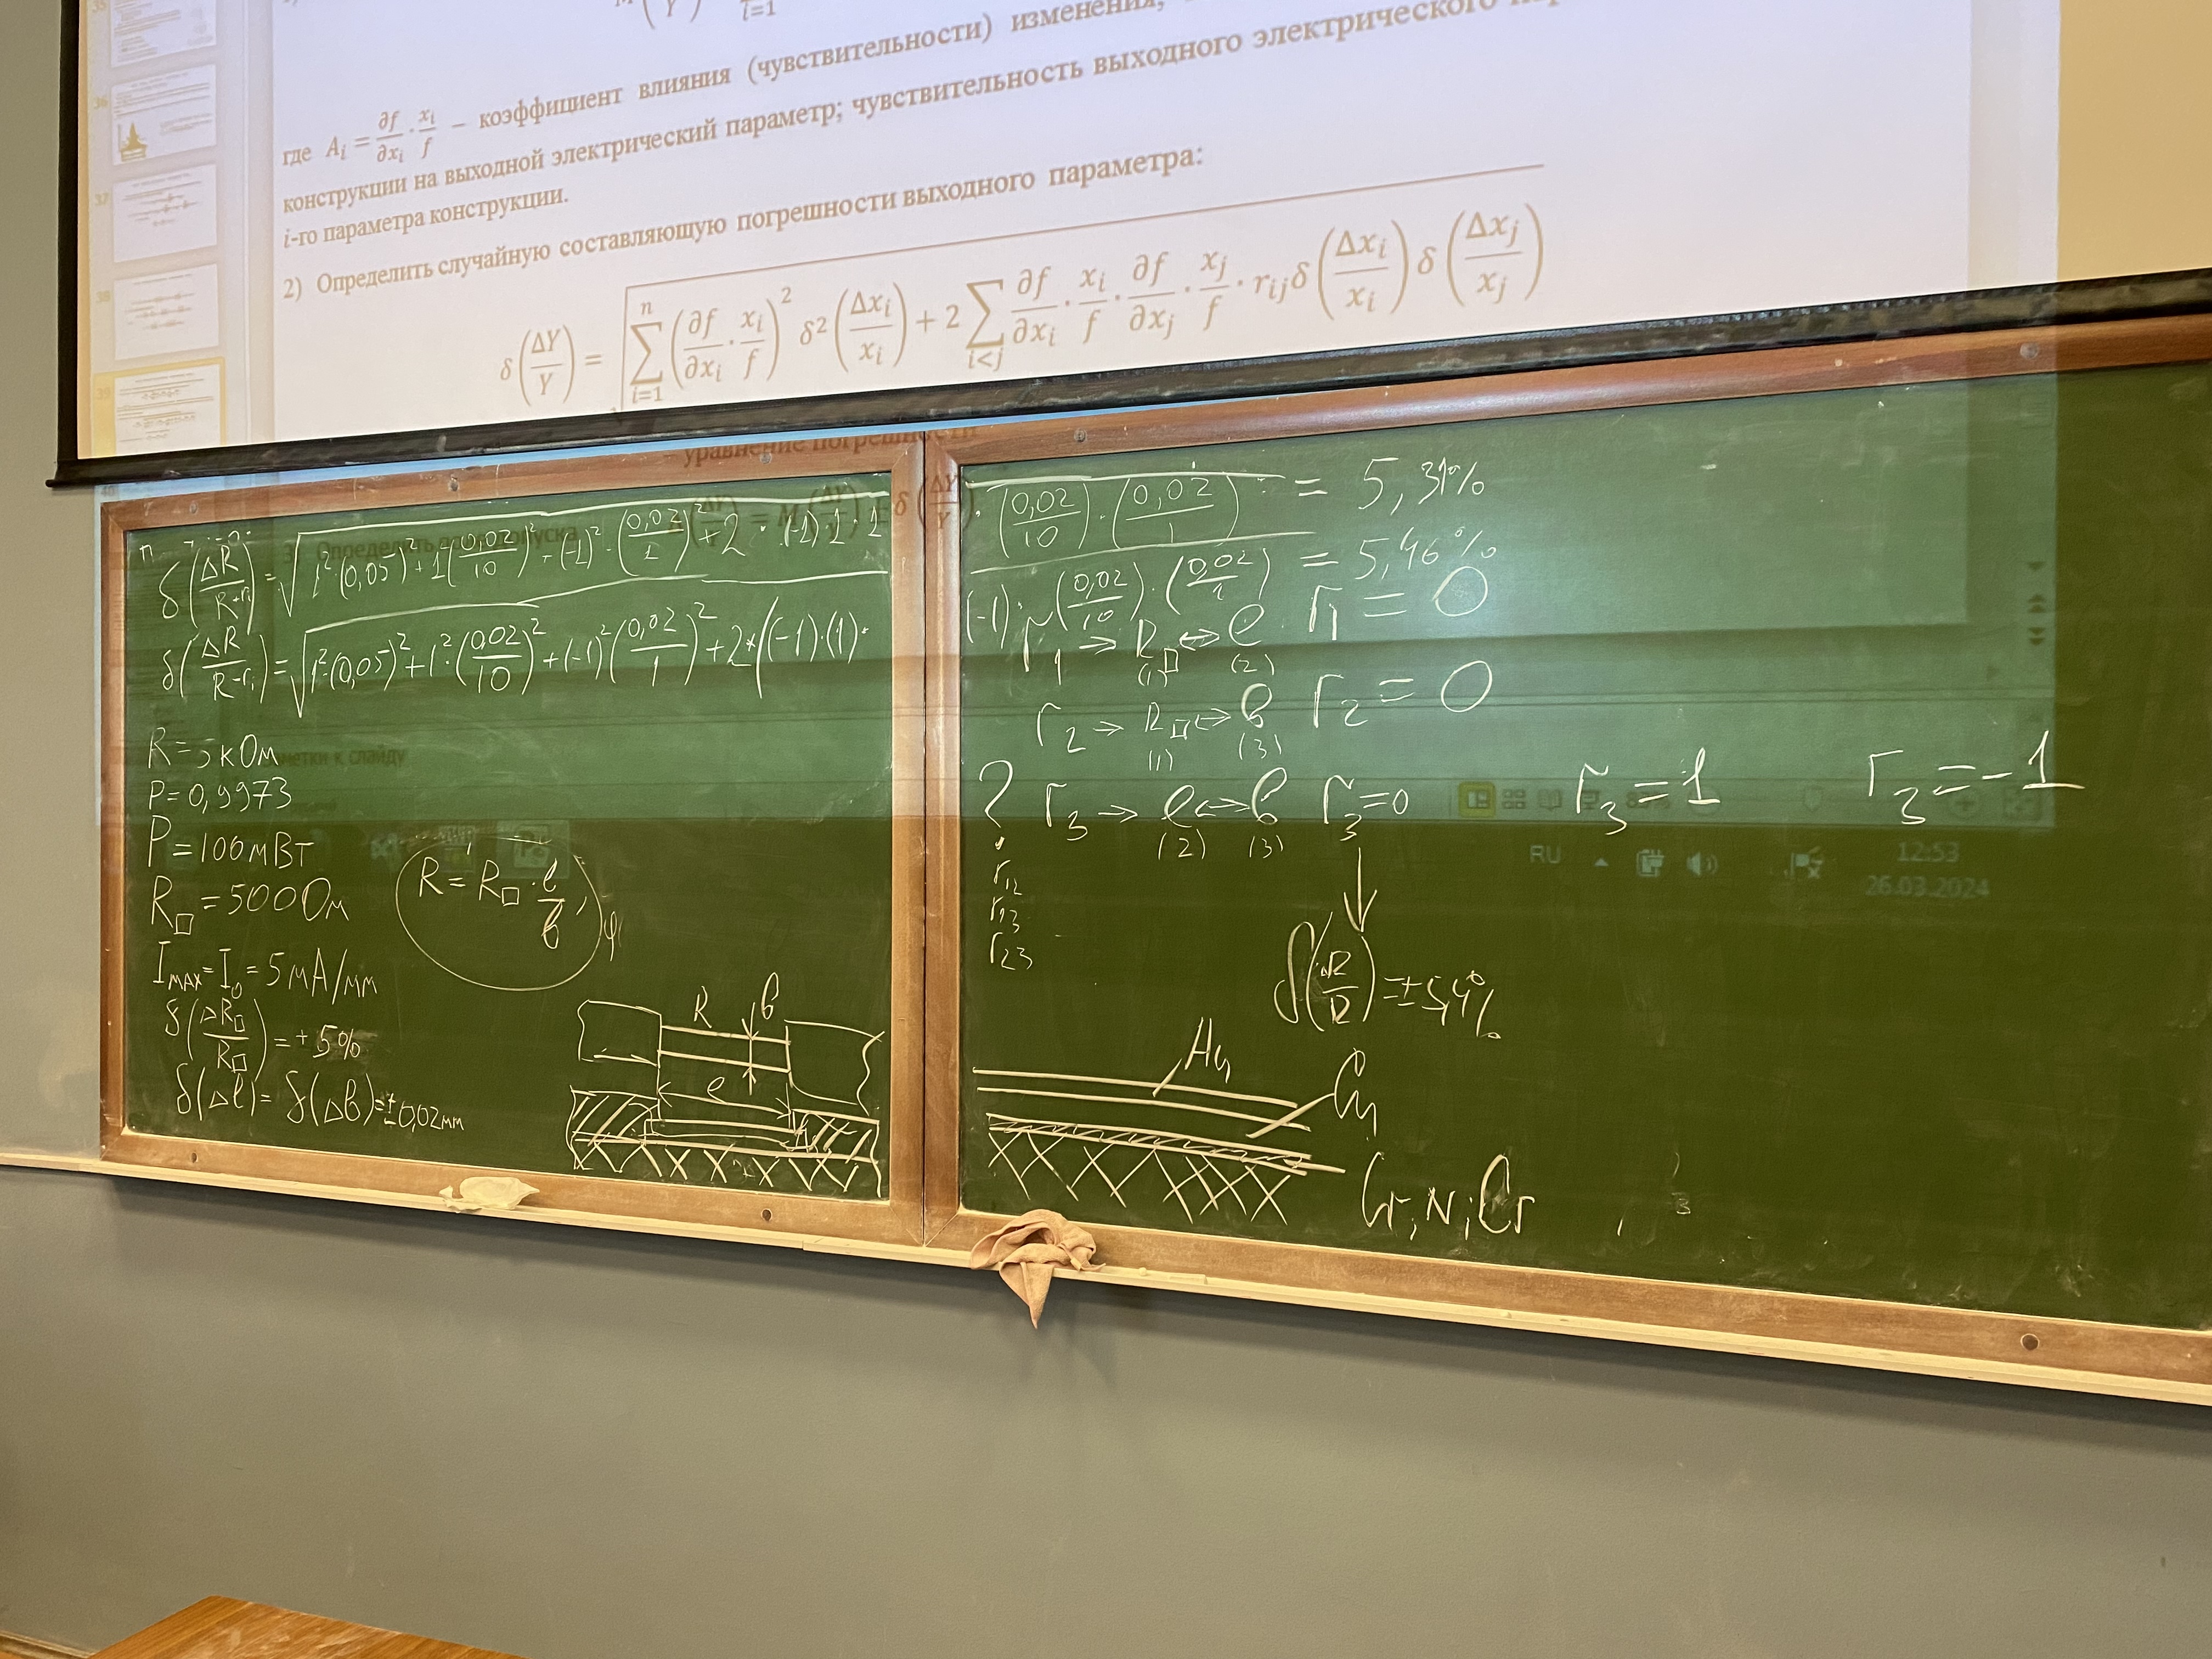 где A_i = ∂f/∂x_i · x_i/f – коэффициент влияния (чувствительности) изменения,
конструкции на выходной электрический параметр; чувствительность выходного электрического
i-го параметра конструкции.
2) Определить случайную составляющую погрешности выходного параметра:
δ(ΔY/Y) = √(∑_{i=1}^{n} (∂f/∂x_i · x_i/f)² δ²(Δx_i/x_i) + 2 ∑_{i<j} ∂f/∂x_i · x_i/f · ∂f/∂x_j · x_j/f · r_ij δ(Δx_i/x_i) δ(Δx_j/x_j))
– уравнение погрешности
36
37
38
39
δ(ΔR/R+r) = √(1²·(0,05)² + 1(0,02/10)² + (-1)²·(0,02/1)² + 2·(-1)·1·1 · (0,02/10)·(0,02/1)) = 5,31%
δ(ΔR/R-r) = √(1²(0,05)² + 1²·(0,02/10)² + (-1)²(0,02/1)² + 2*((-1)·(1)· (-1)·(0,02/10)·(0,02/1)) = 5,46%
R = 5кОм
P = 0,9973
P = 100мВт
R□ = 500Ом
I_MAX = I_0 = 5мА/мм
δ(ΔR□/R□) = ± 5%
δ(Δℓ) = δ(Δв) = ±0,02мм
R = R□ · ℓ/в
R
в
ℓ
r1 → R□ ↔ ℓ r1 = 0
(1) (2)
r2 → R□ ↔ в r2 = 0
(1) (3)
? r3 → ℓ ↔ в r3 = 0 r3 = 1 r3 = -1
(2) (3)
r12
r13
r23
δ(ΔR/R) = ±5,4%
Au
Cu
Cr, NiCr
заметки к слайду
RU
12:53
26.03.2024